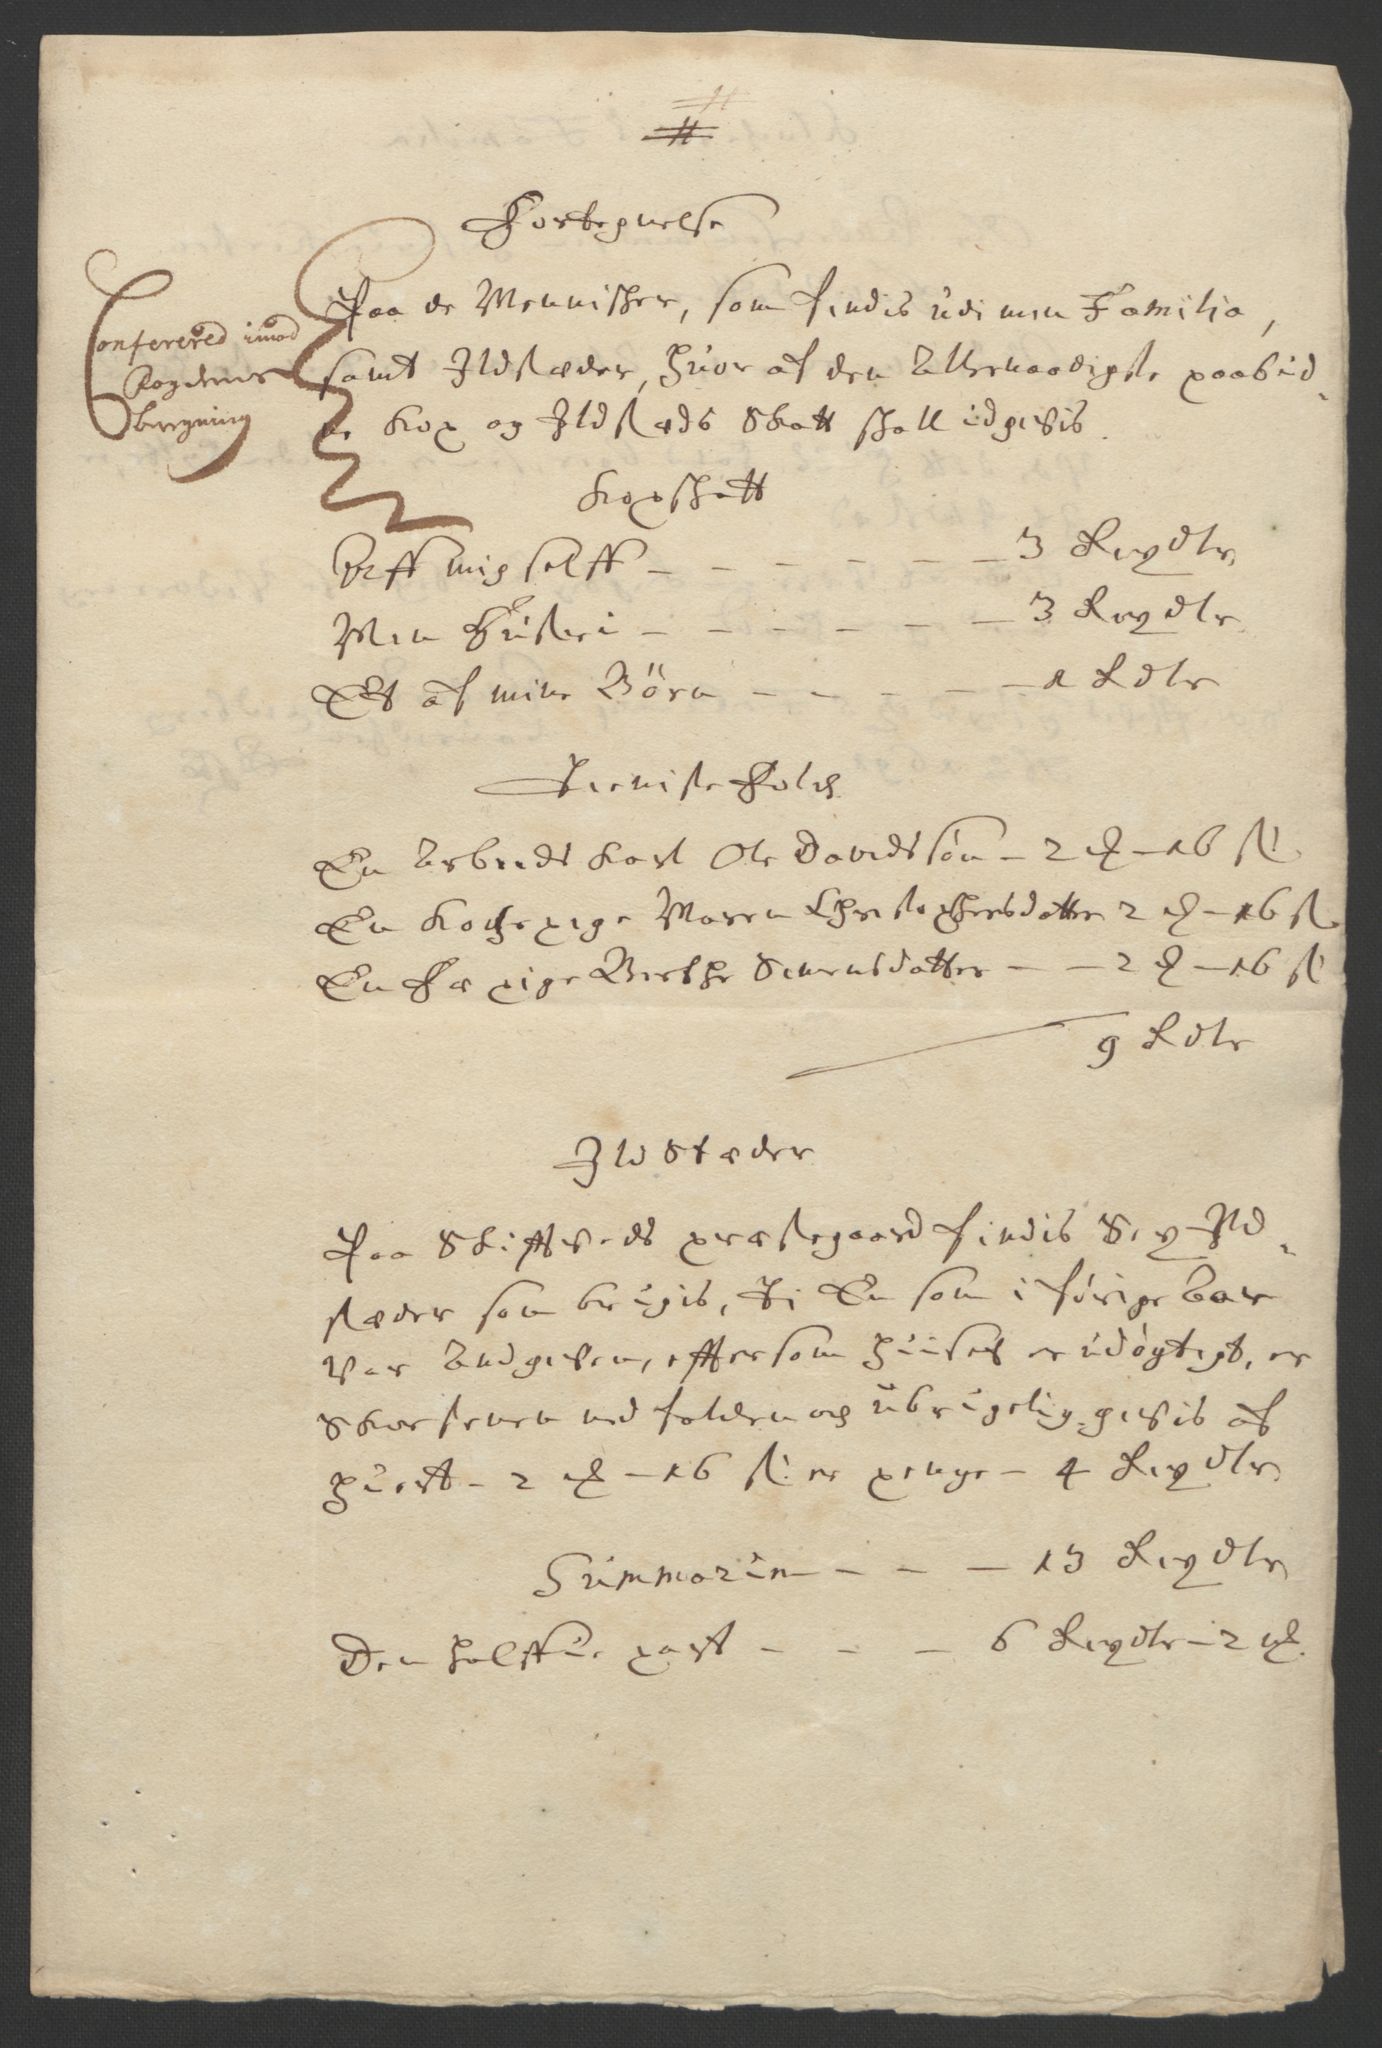 #
Fortegnelse
Conferered imod
Fogdens
beregning
Paa de Mennischer, som findis udi min Familia,
samt Ildstæder, huor af den Allernaadigste paabud-
ne Kop og Ildstæds Skatt schall udgifvis.
Kopschatt
Aff mig selff - - - - - - 3 Rixdlr
Min Hustrü - - - - - - 3 Rixdlr
Et af mine Börn - - - - - 1 Rdlr
Tieniste Folch
En Arbeids Karl Ole Davidssön - 2 ort - 16 s
En Kocke pige Maren Christophersdatter 2 ort - 16 s
En Fæ pige Berthe Simensdatter - - 2 ort - 16 s
9 Rdlr
Ild Stæder
Paa Skiffveds præstegaard findis Sex Ild-
stæder som brugis, Ti En som i forige Aar
var Andgiven, effter som huuset er udögtigt, er
Skorstenen nedfalden och ubrugelig. gifvis af
huert - 2 ort - 16 s er penge - 4 Rixdlr
Summarum - - - 13 Rixdlr
Den halffue part - - - 6 Rixdlr - 2 ort.